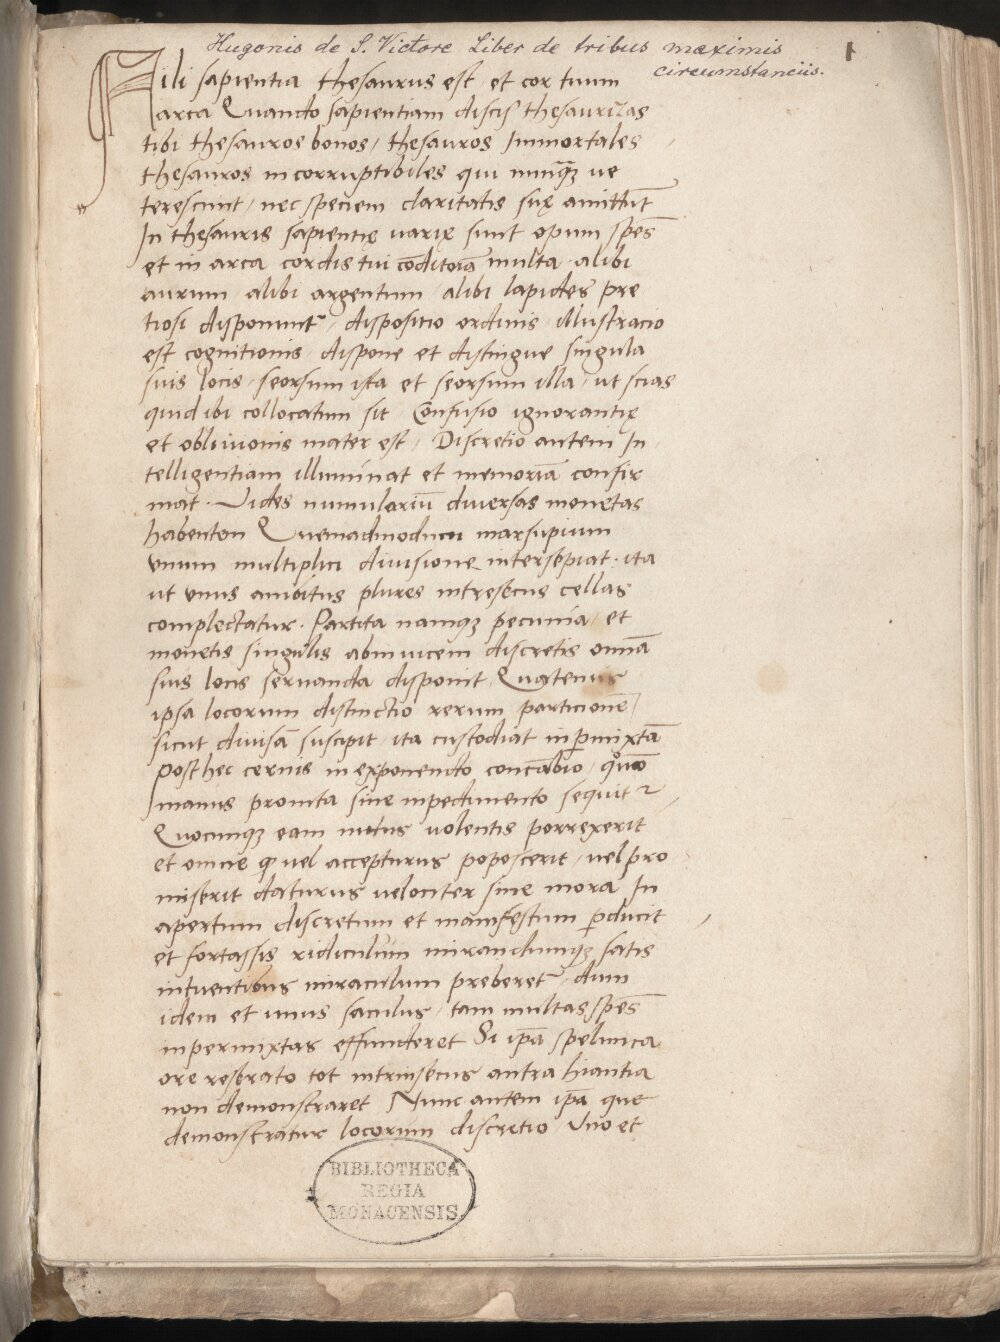 Hugonis de S. Victore Liber de tribus maximis
circumstanciis.
1
Fili sapientia thesaurus est et cor tuum
arca Quando sapientiam discis thesaurizas
tibi thesauros bonos / thesauros Immortales
thesauros incorruptibiles qui nunq̃ȝ ve
terescunt / nec speciem claritatis suę amittũt
In thesauris sapientię uarię sunt opum sp̃es
et in arca cordis tui cõditoia multa · alibi
aurum / alibi argentum / alibi lapides pre
tiosi disponunt᷑ / dispositio ordinis / illustracio
est cognitionis / dispone et distingue singula
suis locis / seorsum ista et seorsum illa / ut scias
quid ibi collocatum sit Confusio ignorantię
et obliuionis mater est / Discretio autem In
telligentiam illuminat et memoriã confir
mat · Vides numulariũ diuersas monetas
habentem Quemadmodum marsupium
unum multiplici diuisione intersepiat · ita
ut unus ambitus plures intresecus cellas
complectatur · Partita namqȝ pecunia / et
monetis singulis abinuicem discretis omnia
suis locis seruanda disponit / Quatenus
ipsa locorum distinctio rerum particionẽ /
sicut diuisã suscipit / ita custodiat inp̱mixtã
Post hec cernis in exponendo concãbio / quõ
manus promta sine inpedimento sequit᷑ /
Quocunqȝ eam nutus uolentis porrexerit
et omne qđ vel accepturus poposcerit / vel pro
miserit daturus velociter sine mora In
apertum discretum et manifestum p̱ducit
et fortassis ridiculum mirandumqȝ satis
intuentibus miraculum preberet / dum
idem et unus saculus / tam multas sp̃es
inpermixtas effunderet Si ip̃a spelunca
ore reserato tot intrinsecus antra hiantia
non demonstraret Nunc autem ip̃a que
demonstratur locorum discretio Vno et
BIBLIOTHECA
REGIA
MONACENSIS.